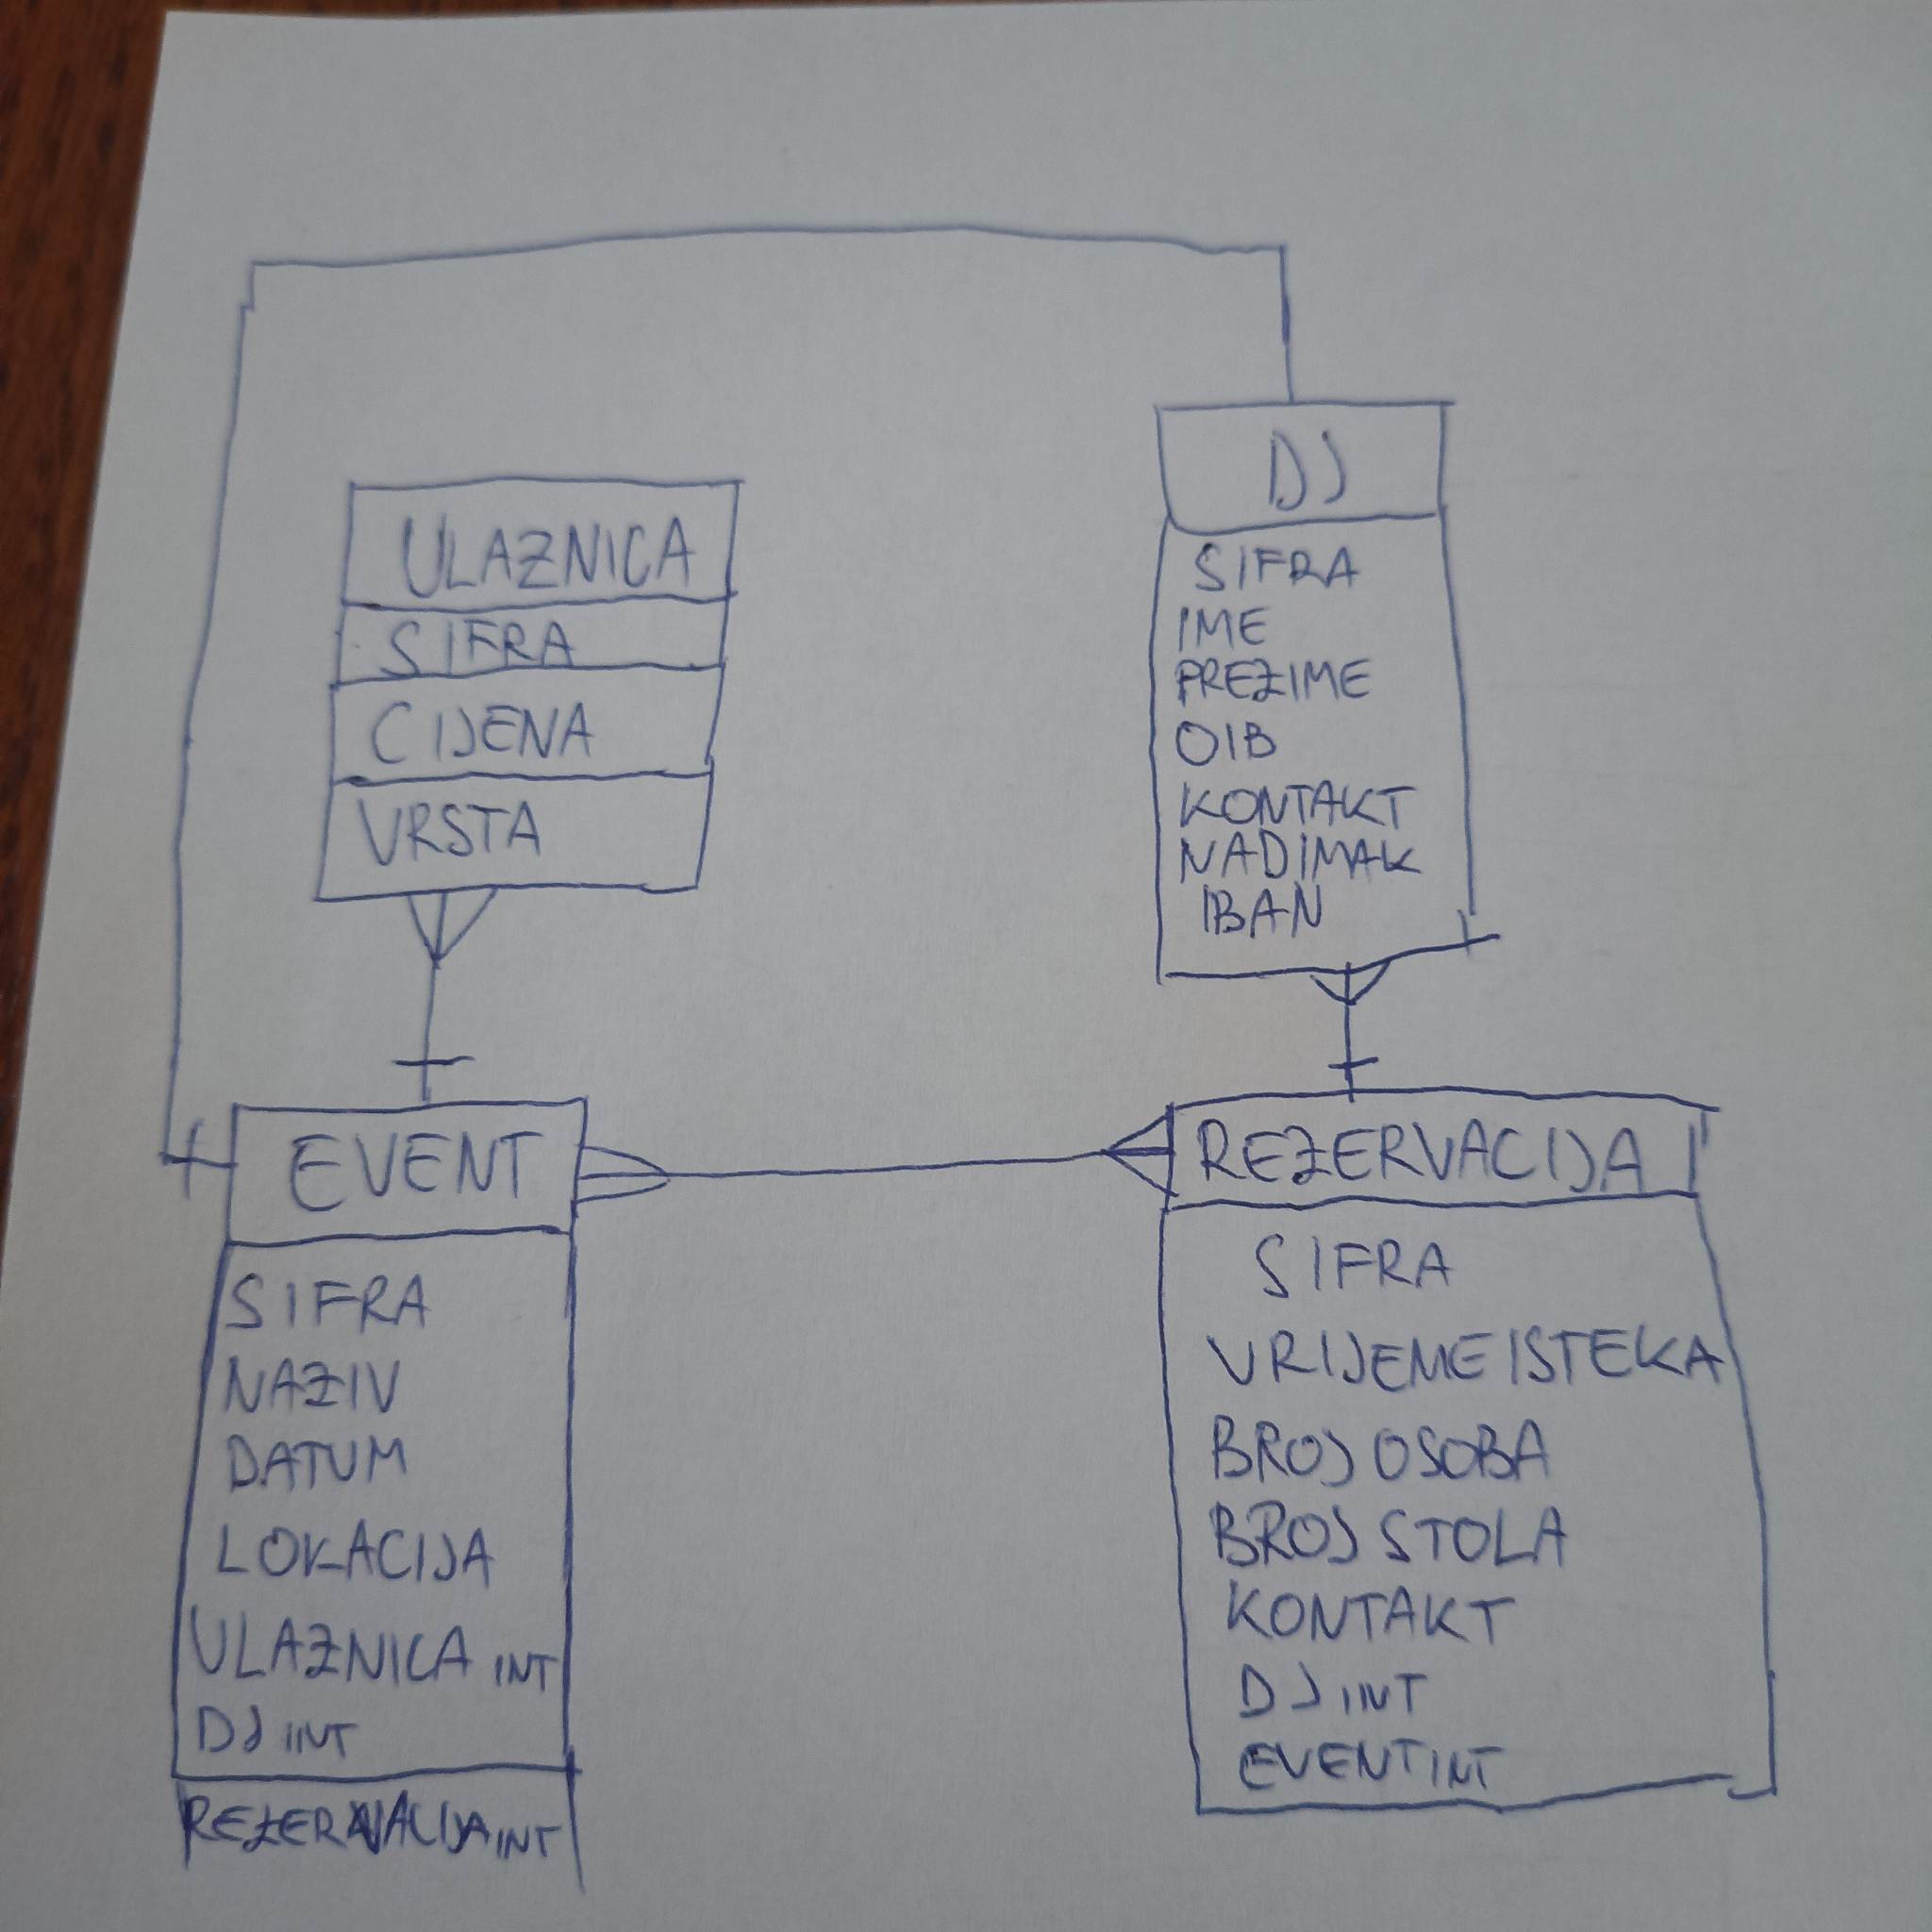 ULAZNICA
SIFRA
CIJENA
VRSTA
DJ
SIFRA
IME
PREZIME
OIB
KONTAKT
NADIMAK
IBAN
EVENT
SIFRA
NAZIV
DATUM
LOKACIJA
ULAZNICA INT
DJ INT
REZERVACIJA INT
REZERVACIJA
SIFRA
VRIJEME ISTEKA
BROJ OSOBA
BROJ STOLA
KONTAKT
DJ INT
EVENT INT